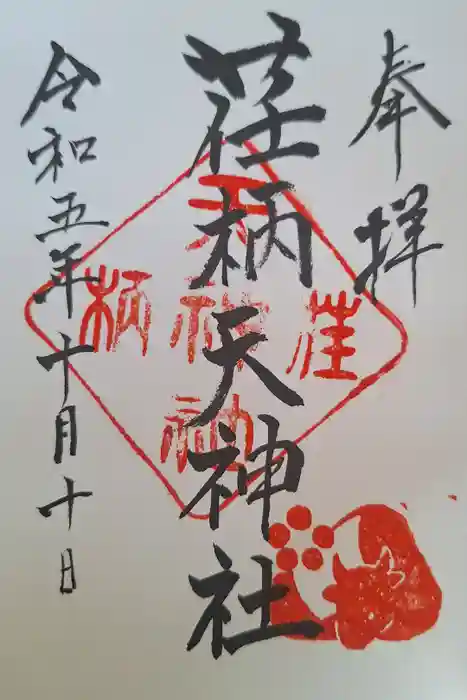 奉拝
荏柄天神社
令和五年十月十日
荏
天神
柄
社